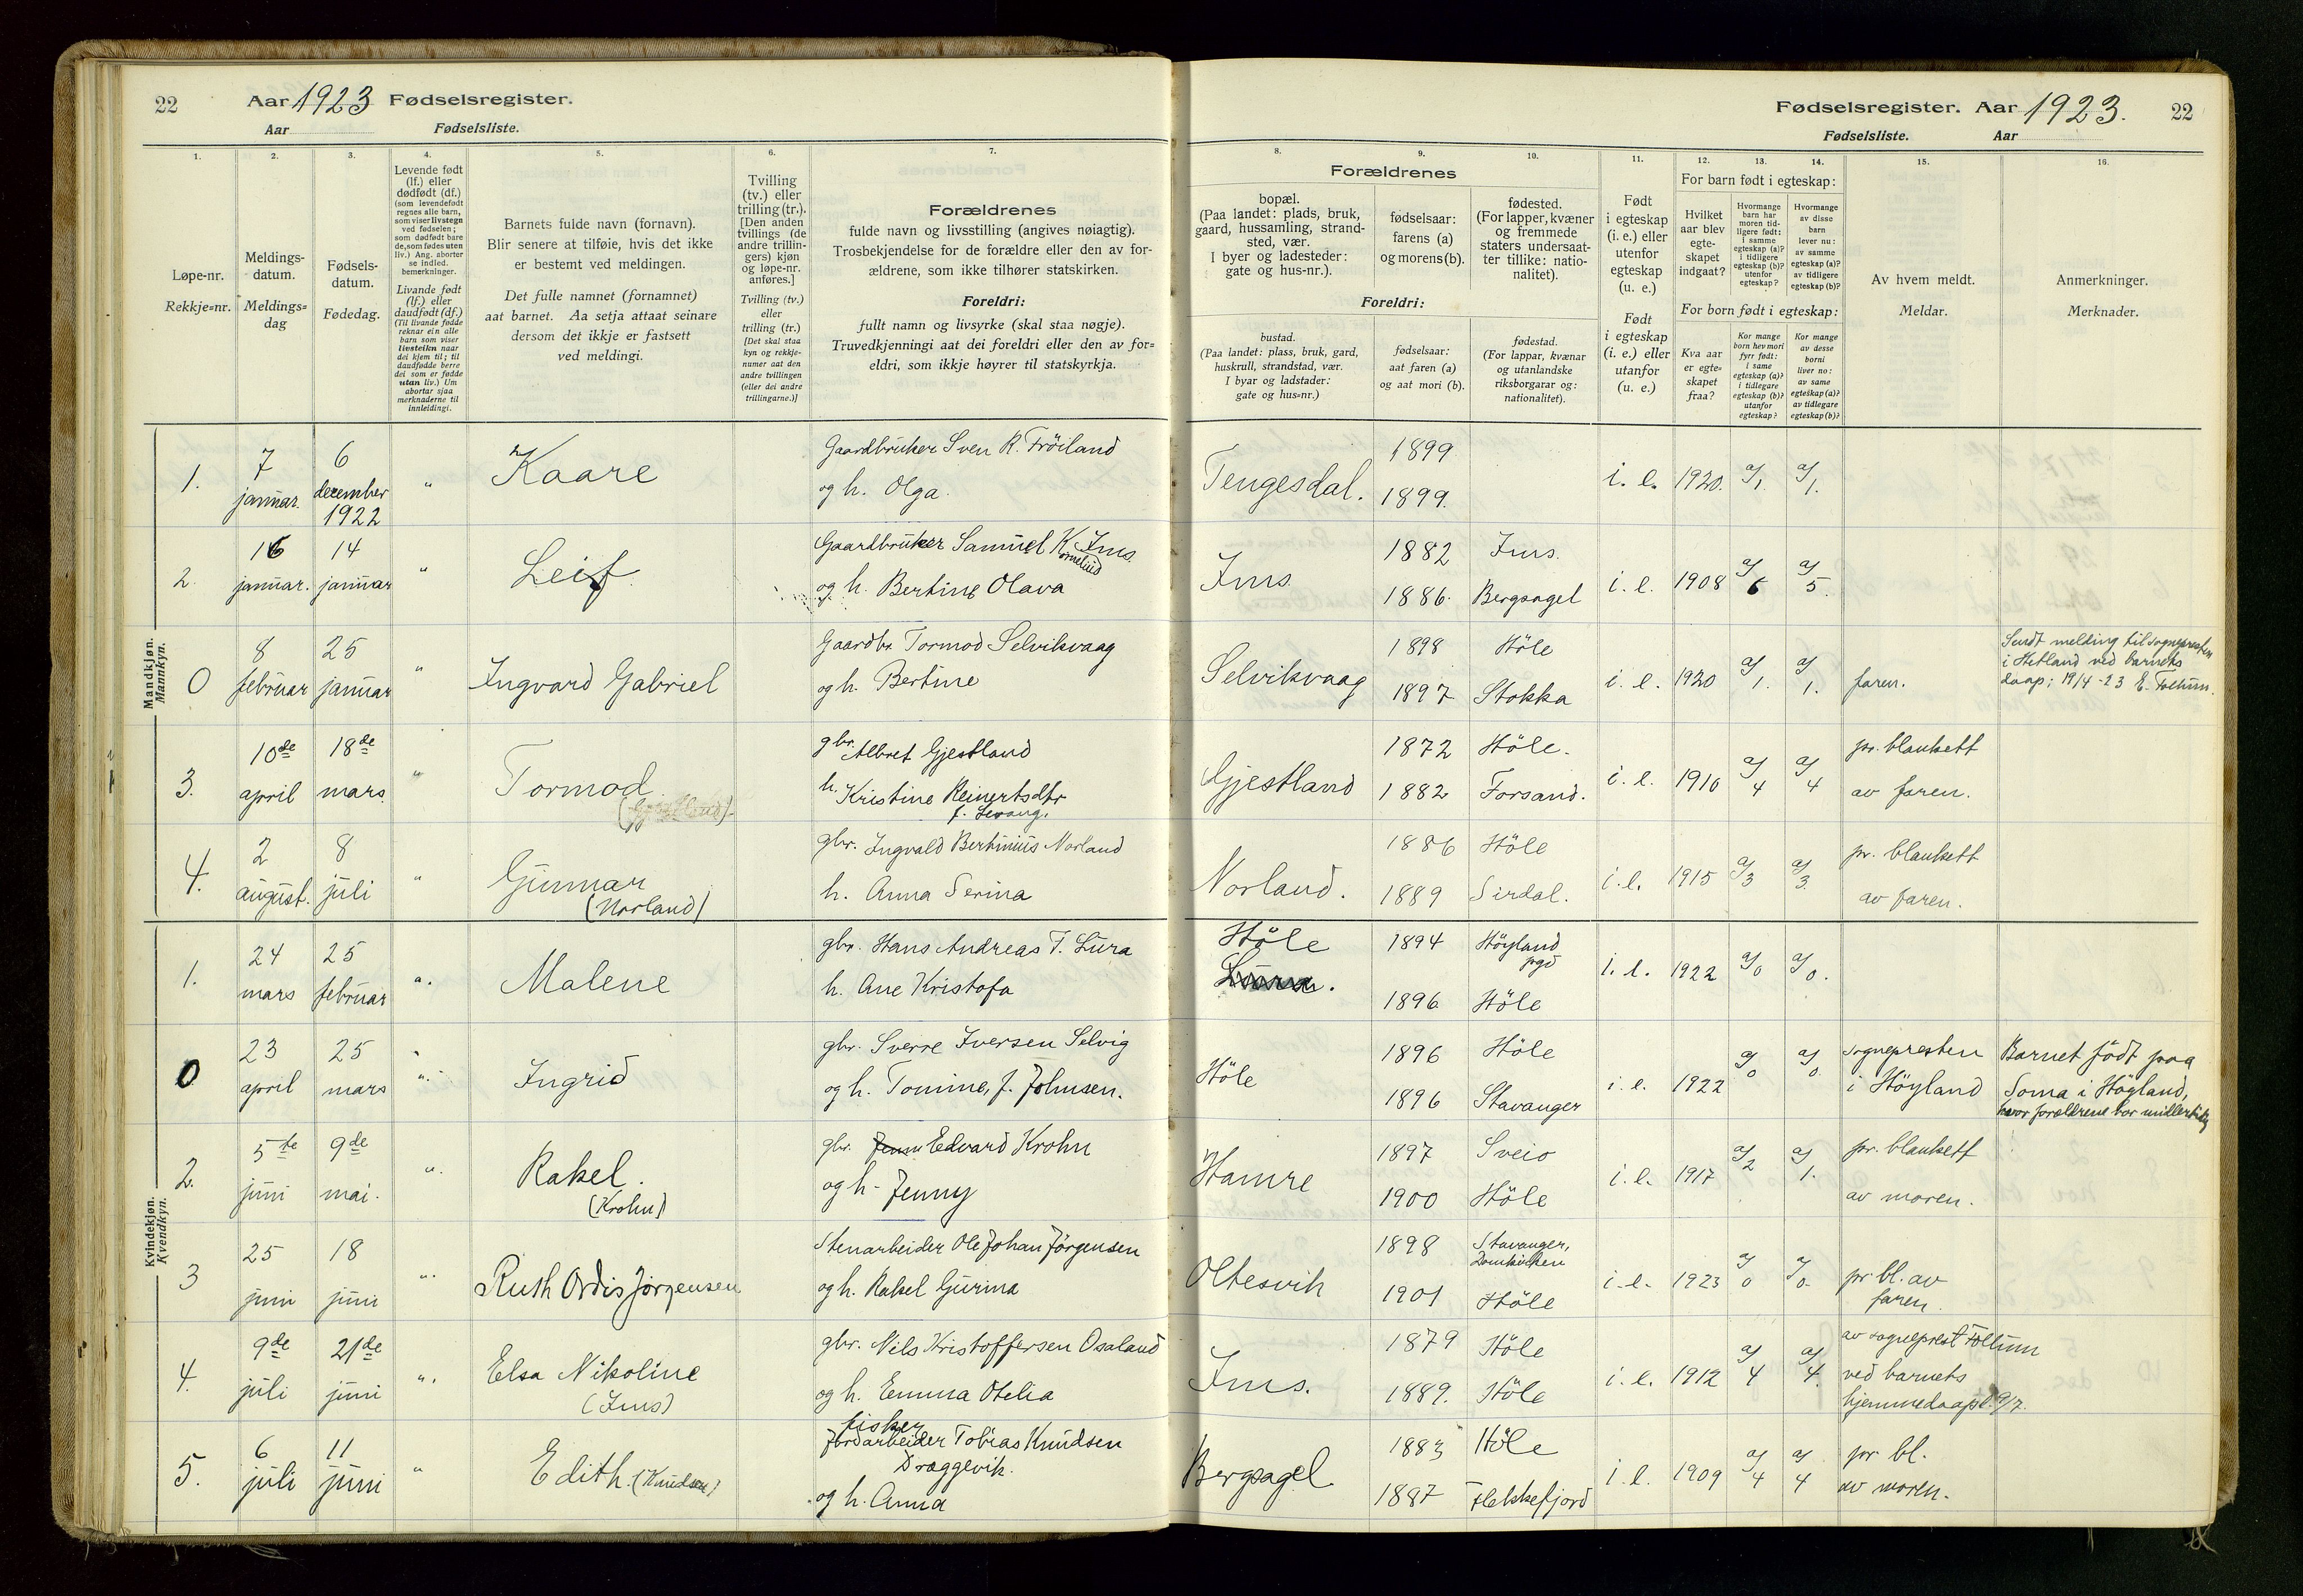 22
Aar 1923 Fødselsregister.
Aar Fødselsliste.
1.
2.
3.
4.
5.
6.
7.
Løpe-nr.
Rekkje=nr.
Meldings-
datum.
Meldings=
dag
Fødsels-
datum.
Fødedag.
Levende født
(lf.) eller
dødfødt (df.)
(som levendefødt
regnes alle barn,
som viser livstegn
ved fødselen;
som dødfødt bare
de, som fødes uten
liv.) Ang. aborter
se indled.
bemerkninger.
Livande født
(lf.) eller
daudfødt (df.)
(Til livande fødde
reknar ein alle
barn som viser
livsteikn naar
dei kjem til; til
daudfødde berre
dei som er fødde
utan liv.) Um
abortar sjaa
merknaderne til
innleidingi.
Barnets fulde navn (fornavn).
Blir senere at tilføie, hvis det ikke
er bestemt ved meldingen.
Det fulle namnet (fornamnet)
aat barnet. Aa setja attaat seinare
dersom det ikkje er fastsett
ved meldingi.
Tvilling
(tv.) eller
trilling (tr.).
[Den anden
tvillings (de
andre trillin-
gers) kjøn
og løpe-nr.
anføres.]
Tvilling (tv.)
eller
trilling (tr.)
[Det skal staa
kyn og rekkje-
numer aat den
andre tvillingen
(eller dei andre
trillingarne.)]
Forældrenes
fulde navn og livsstilling (angives nøiagtig).
Trosbekjendelse for de forældre eller den av for-
ældrene, som ikke tilhører statskirken.
Foreldri:
fullt namn og livsyrke (skal staa nøgje).
Truvedkjenningi aat dei foreldri eller den av for=
eldri, som ikkje høyrer til statskyrkja.
Mandkjøn.
Mannkyn.
1.
7
januar.
6
december
1922
"
Kaare
Gaardbruker Sven R. Fröiland
og h. Olga.
2.
16
januar.
14
januar
"
Leif
Gaardbruker Samuel K Ims.
ornelius
og h. Bertine Olava
0
8
februar
25
januar
"
Ingvard Gabriel
Gaardbr. Tormod Selvikvaag
og h. Bertine
3.
10de
april
18de
mars.
"
Tormod
gbr. Albret Gjestland
h. Kristine Reinertsdtr
f. Levang.
4.
2
august.
8
juli
"
Gunnar
(Norland)
gbr. Ingvald Bertinius Norland
h. Anna Serina
Kvindekjøn.
Kvendkyn.
1.
24
mars
25
februar
".
Malene
gbr. Hans Andreas T. Lura
h. Ane Kristofa
0
23
april
25
mars
".
Ingrid
gbr. Sverre Iversen Selvig
og h. Tomine, f. Johnsen.
2.
5te
juni
9de
mai.
".
Rakel.
(Krohn)
gbr. Jenny Edvard Krohn
og h. Jenny
3
25
juni
18
juni
".
Ruth Ordis Jørgensen
Stenarbeider Ole Johan Jörgensen
og h. Rakel Gurina
4.
9de
juli
21de
juni
".
Elsa Nikoline
(Ims)
gbr. Nils Kristoffersen Osaland
og h. Emma Otelia
5.
6
juli
11
juni
"
Edith. (Knudsen)
fisker
Jordarbeider Tobias Knudsen
Draggevik.
og h. Anna
Fødselsregister. Aar 1923. 22
Fødselsliste. Aar
8.
9.
10.
11.
12.
13.
14.
15.
16.
Forældrenes
bopæl.
(Paa landet: plads, bruk,
gaard, hussamling, strand-
sted, vær.
I byer og ladesteder:
gate og hus-nr.).
fødselsaar:
farens (a)
og morens (b).
fødested.
(For lapper, kvæner
og fremmede
staters undersaat-
ter tillike: natio-
nalitet).
Foreldri:
bustad.
(Paa landet: plass, bruk, gard,
huskrull, strandstad, vær.
I byar og ladstader:
gate og hus=nr.)
fødselsaar:
aat faren (a)
og aat mori (b).
fødestad.
(For lappar, kvænar
og utanlandske
riksborgarar og:
nationalitet).
Født
i egteskap
(i. e.) eller
utenfor
egteskap
(u. e.)
Født
i egteskap
(i. e.) eller
utanfor
(u. e.)
For barn født i egteskap:
Hvilket
aar blev
egte-
skapet
indgaat?
Hvormange
barn har
moren tid-
ligere født:
i samme
egteskap (a)?
i tidligere
egteskap (b)?
utenfor
egteskap?
Hvormange
av disse
barn
lever nu:
av samme
egteskap (a)?
av tidligere
egteskap (b)?
For born født i egteskap:
Kva aar
er egte=
skapet
fraa?
Kor mange
born hev mori
fyrr født:
i same
egteskap (a)?
i tidlegare
egteskap (b)?
utanfor
egteskap?
Kor mange
av desse
borni
liver no:
av same
egteskap (a)?
av tidlegare
egteskap (b)?
Av hvem meldt.
Meldar.
Anmerkninger.
Merknader.
Tengesdal.
1899
1899.
i. e.
1920.
a/1.
a/1.
Ims.
1882
1886.
Ims.
Bergsagel
i. e.
1908
a/6
a/5.
Selvikvaag
1898
1897
Höle
Stokka
i. e.
1920
a/1.
a/1.
faren.
Sendt melding til sognepresten
i Hetland ved barnets
daap; 19/4-23 E. Follum.
Gjestland
1872
1882
Höle.
Forsand.
i. e.
1910
a/4
a/4
pr. blankett
av faren.
Norland.
1886
1889
Höle
Sirdal.
i. e.
1915
a/3
a/3.
pr. blankett
av faren.
Höle
Lura.
1894
1896
Höyland
pgd
Höle
i. e.
1922
a/0
a/0.
Höle
1896
1896
Höle
Stavanger
i. e.
1922
a/0
a/0.
sognepresten
i Höyland
Barnet födt paa
Soma i Höyland,
hvor forældrene bor midlertidig
Hamre
1897
1900
Sveio
Höle
i. e.
1917
a/2
a/1.
pr. blankett
av moren.
Oltesvik
1898
1901
Stavanger,
Domkirken
Höle
i. e.
1923
a/0
a/0.
pr bl. av
faren.
Ims.
1879
1889.
Höle
Höle
i. e.
1912
a/4
a/4.
av sogneprest Follum
ved barnets
hjemmedaap d. 9/7.
Bergsagel
1883
1887
Höle
Flekkefjord
i. e.
1909
a/4
a/4
pr bl.
av moren.